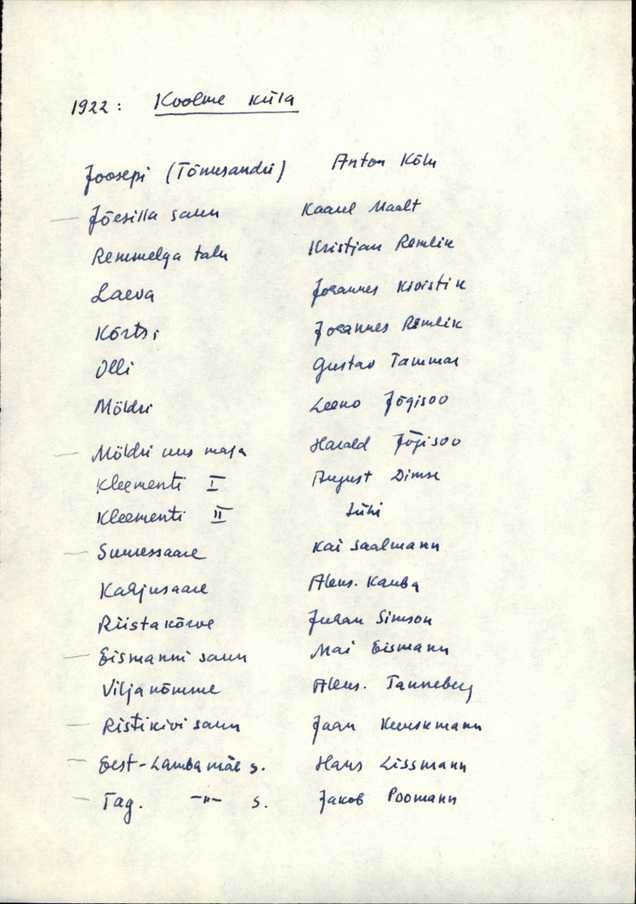 1922: Koolme küla
Joosepi (Tõnusandri) Anton Kõlu
— Jõesilla saun Kaarel Maalt
Remmelga talu Kristjan Remlik
Laeva Joeannes Kivistik
Kõrtsi Joeannes Remlik
Olli Gustav Tammar
Möldri Leeno Jõgisoo
— Möldri uus maja Harald Jõgisoo
Kleementi I August Dimse
Kleementi II Jühi
— Suuressaare Kai Saalmann
Karjusaare Aleks. Kauba
Riistakõrve Juhan Simson
— Eismanni saun Mai Eismann
Viljanõmme Aleks. Tanneberg
— Ristikivi saun Jaan Kuuskmann
— Eest-Lambamäe s. Hans Lissmann
— Tag. —"— s. Jakob Poomann